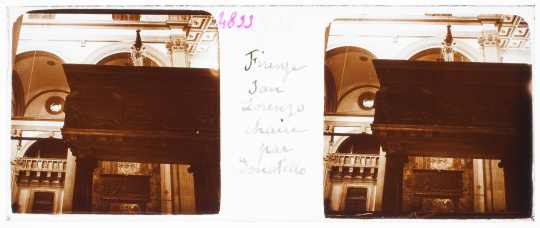 4833
Firenze
San
Lorenzo
chaire
par
Donatello